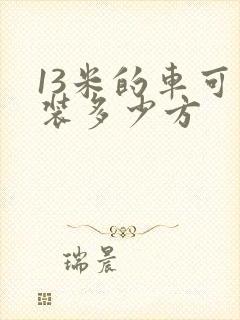 13米的車可
装多少方
瑞晨